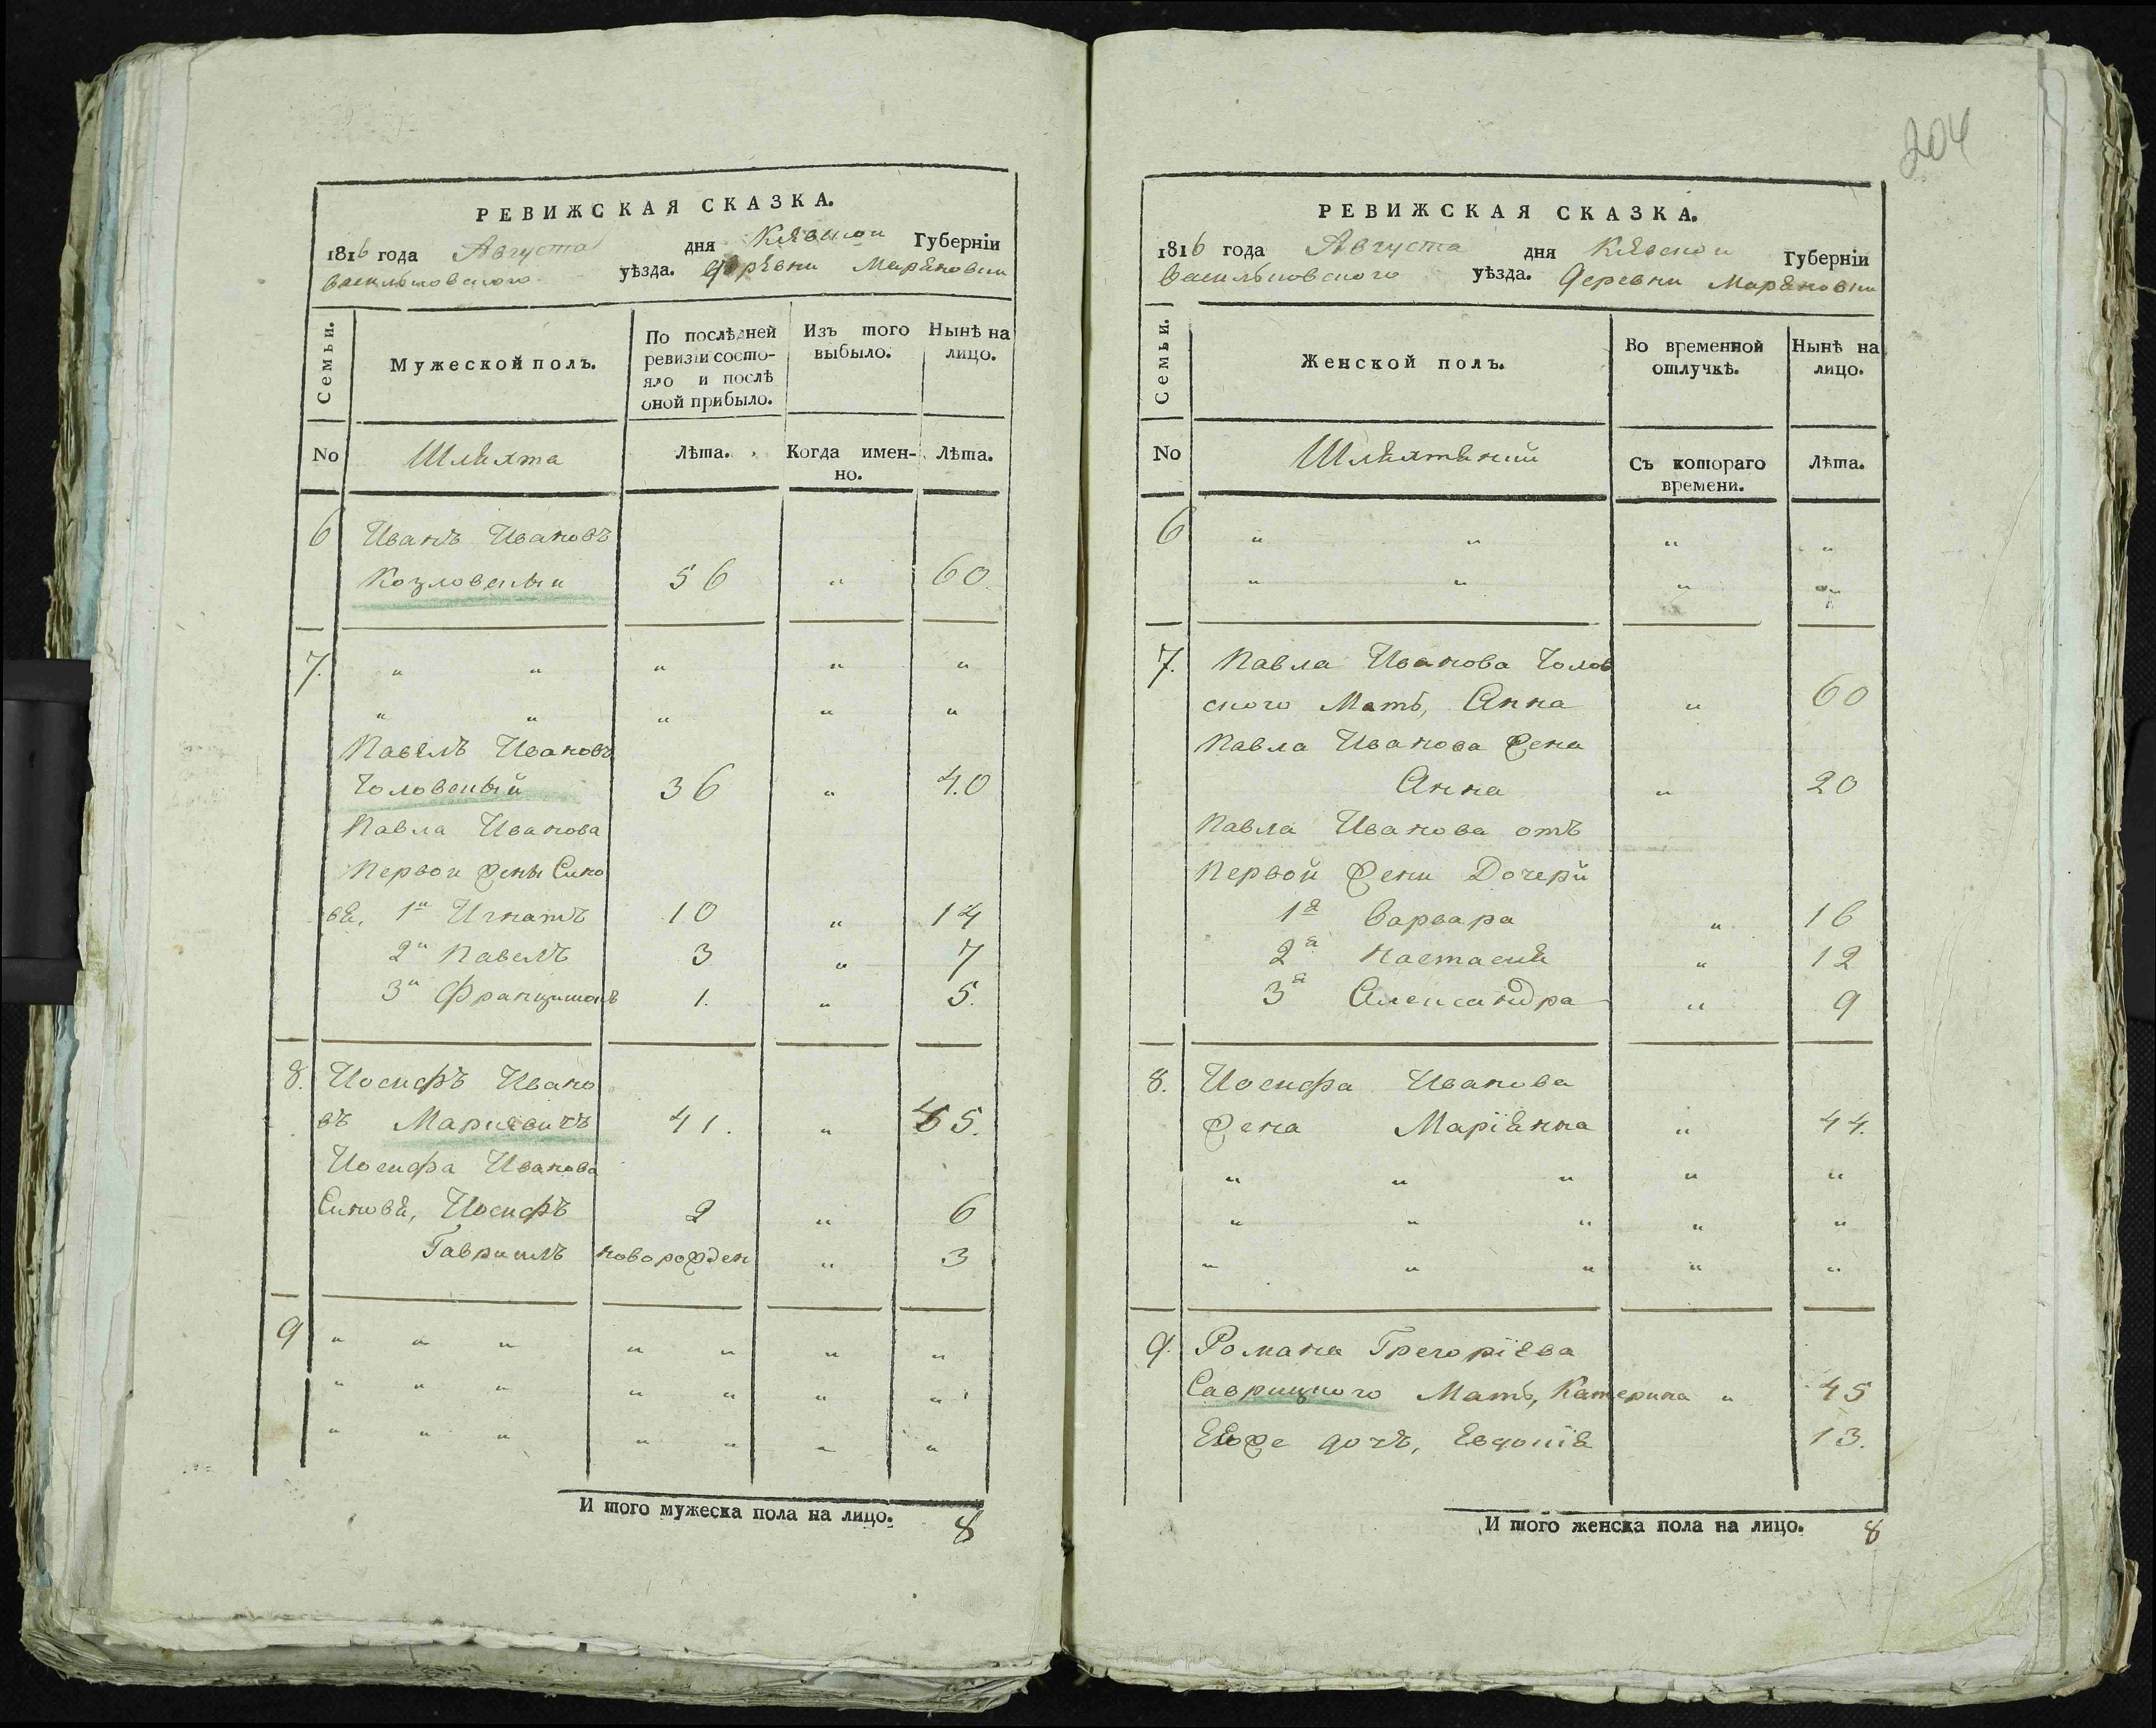 204
РЕВИЖСКАЯ СКАЗКА.
1816 года Августа дня Кіевской Губерніи
Васильковского уѣзда. Деревни Маряновки
Семьи.
Мужеской полъ.
По послѣдней ревизіи состо-
яло и послѣ
оной прибыло.
Изъ того
выбыло.
Нынѣ на
лицо.
No
Шляхта
Лѣта.
Когда имен-
но.
Лѣта.
6 Иванъ Ивановъ
Козловскій 56 " 60
7. " " " " "
" " " " "
Павелъ Ивановъ
Чоловскій 36 " 40
Павла Иванова
Первой жены Сино
вя, 1й Игнатъ 10 " 14
2й Павелъ 3 " 7
3й Францишокъ 1. " 5.
8. Иосифъ Ивано
въ 41. " 45.
Иосифа Иванова
Синовя, Иосифъ 2 " 6
Гавриилъ новорожден " 3
9 " " " " " " "
" " " " " " "
" " " " " " "
И того мужеска пола на лицо. 8
РЕВИЖСКАЯ СКАЗКА.
1816 года Августа дня Кіевской Губерніи
Васильковского уѣзда. Деревни Маряновки
Семьи.
Женской полъ.
Во временной
отлучкѣ.
Нынѣ на
лицо.
No
Шляхтянки
Съ котораго
времени.
Лѣта.
6 " " " "
" " " "
7. Павла Иванова Чолов
ского Мать, Анна " 60
Павла Иванова жена
Анна " 20
Павла Иванова отъ
Первой жени Дочери
1я Варвара " 16
2я Настасия " 12
3я Александра " 9
8. Иосифа Иванова
жена Маріянна " 44.
" " " " "
" " " " "
" " " " "
9. Романа Грегоріева
Саврицкого Мать, Катерина " 45
Ею же дочъ, Евдокія 13.
И того женска пола на лицо. 8